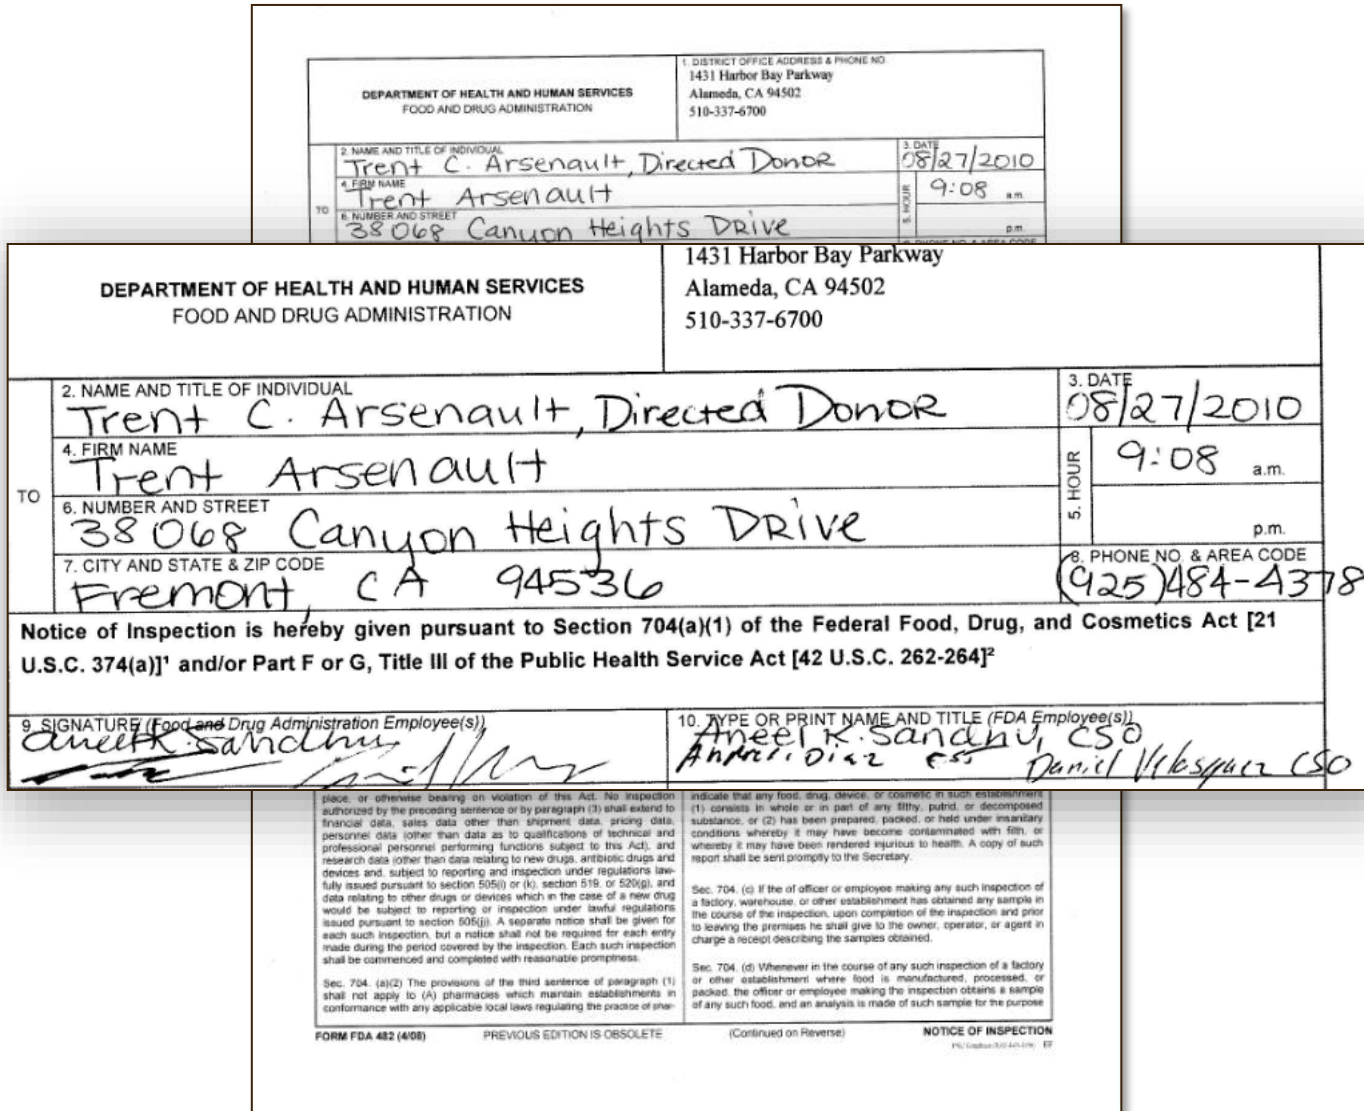 1. DISTRICT OFFICE ADDRESS & PHONE NO
1431 Harbor Bay Parkway
Alameda, CA 94502
510-337-6700
DEPARTMENT OF HEALTH AND HUMAN SERVICES
FOOD AND DRUG ADMINISTRATION
2. NAME AND TITLE OF INDIVIDUAL
Trent C. Arsenault, Directed Donor
3. DATE
08/27/2010
4. FIRM NAME
Trent Arsenault
5. HOUR
9:08 a.m.
p.m.
TO
6. NUMBER AND STREET
38068 Canyon Heights Drive
1431 Harbor Bay Parkway
Alameda, CA 94502
510-337-6700
DEPARTMENT OF HEALTH AND HUMAN SERVICES
FOOD AND DRUG ADMINISTRATION
2. NAME AND TITLE OF INDIVIDUAL
Trent C. Arsenault, Directed Donor
3. DATE
08/27/2010
4. FIRM NAME
Trent Arsenault
5. HOUR
9:08 a.m.
p.m.
TO
6. NUMBER AND STREET
38068 Canyon Heights Drive
7. CITY AND STATE & ZIP CODE
Fremont, CA 94536
8. PHONE NO. & AREA CODE
(925)484-4378
Notice of Inspection is hereby given pursuant to Section 704(a)(1) of the Federal Food, Drug, and Cosmetics Act [21
U.S.C. 374(a)]¹ and/or Part F or G, Title III of the Public Health Service Act [42 U.S.C. 262-264]²
9. SIGNATURE (Food and Drug Administration Employee(s))
Aneel K. Sandhu
10. TYPE OR PRINT NAME AND TITLE (FDA Employee(s))
Aneel K. Sandhu, CSO
Diaz
Daniel Velasquez CSO
place, or otherwise bearing on violation of this Act. No inspection
authorized by the preceding sentence or by paragraph (3) shall extend to
financial data, sales data other than shipment data, pricing data,
personnel data (other than data as to qualifications of technical and
professional personnel performing functions subject to this Act), and
research data (other than data relating to new drugs, antibiotic drugs and
devices and, subject to reporting and inspection under regulations law-
fully issued pursuant to section 505(i) or (k), section 519, or 520(g), and
data relating to other drugs or devices which in the case of a new drug
would be subject to reporting or inspection under lawful regulations
issued pursuant to section 505(j). A separate notice shall be given for
each such inspection, but a notice shall not be required for each entry
made during the period covered by the inspection. Each such inspection
shall be commenced and completed with reasonable promptness.
Sec. 704. (a)(2) The provisions of the third sentence of paragraph (1)
shall not apply to (A) pharmacies which maintain establishments in
conformance with any applicable local laws regulating the practice of phar-
indicate that any food, drug, device, or cosmetic in such establishment
(1) consists in whole or in part of any filthy, putrid, or decomposed
substance, or (2) has been prepared, packed, or held under insanitary
conditions whereby it may have become contaminated with filth, or
whereby it may have been rendered injurious to health. A copy of such
report shall be sent promptly to the Secretary.
Sec. 704. (c) If the of officer or employee making any such inspection of
a factory, warehouse, or other establishment has obtained any sample in
the course of the inspection, upon completion of the inspection and prior
to leaving the premises he shall give to the owner, operator, or agent in
charge a receipt describing the samples obtained.
Sec. 704. (d) Whenever in the course of any such inspection of a factory
or other establishment where food is manufactured, processed, or
packed, the officer or employee making the inspection obtains a sample
of any such food, and an analysis is made of such sample for the purpose
FORM FDA 482 (4/08) PREVIOUS EDITION IS OBSOLETE (Continued on Reverse) NOTICE OF INSPECTION